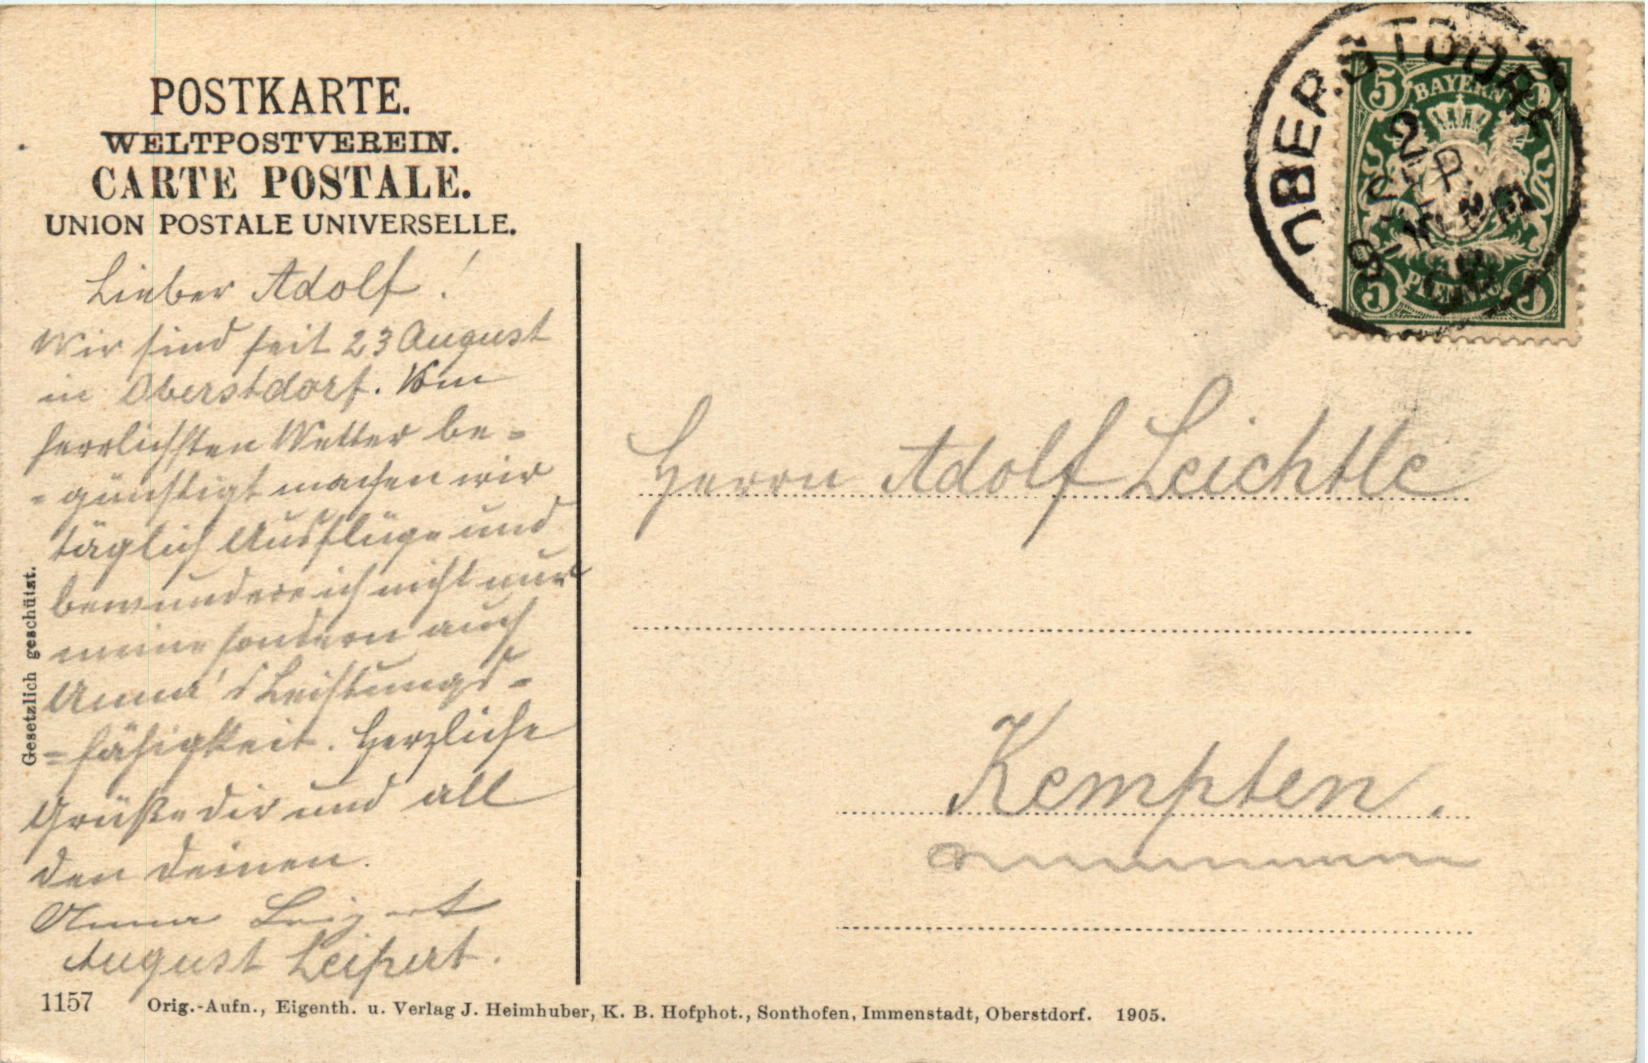 POSTKARTE.
WELTPOSTVEREIN.
CARTE POSTALE.
UNION POSTALE UNIVERSELLE.
Lieber Adolf!
Wir sind seit 23 August
in Oberstdorf. Vom
herrlichsten Wetter be-
-günstigt machen wir
täglich Ausflüge und
bewundere ich nicht nur
meine sondern auch
Anna's Leistungs-
=fähigkeit. Herzliche
Grüße dir und all
den deinen.
Anna Leipert
August Leipert.
Gesetzlich geschützt.
BAYERN
5
5
5
PFENNIG
OBERSTDORF
2
SEP
Herrn Adolf Leichtle
Kempten.
1157 Orig.-Aufn., Eigenth. u. Verlag J. Heimhuber, K. B. Hofphot., Sonthofen, Immenstadt, Oberstdorf. 1905.